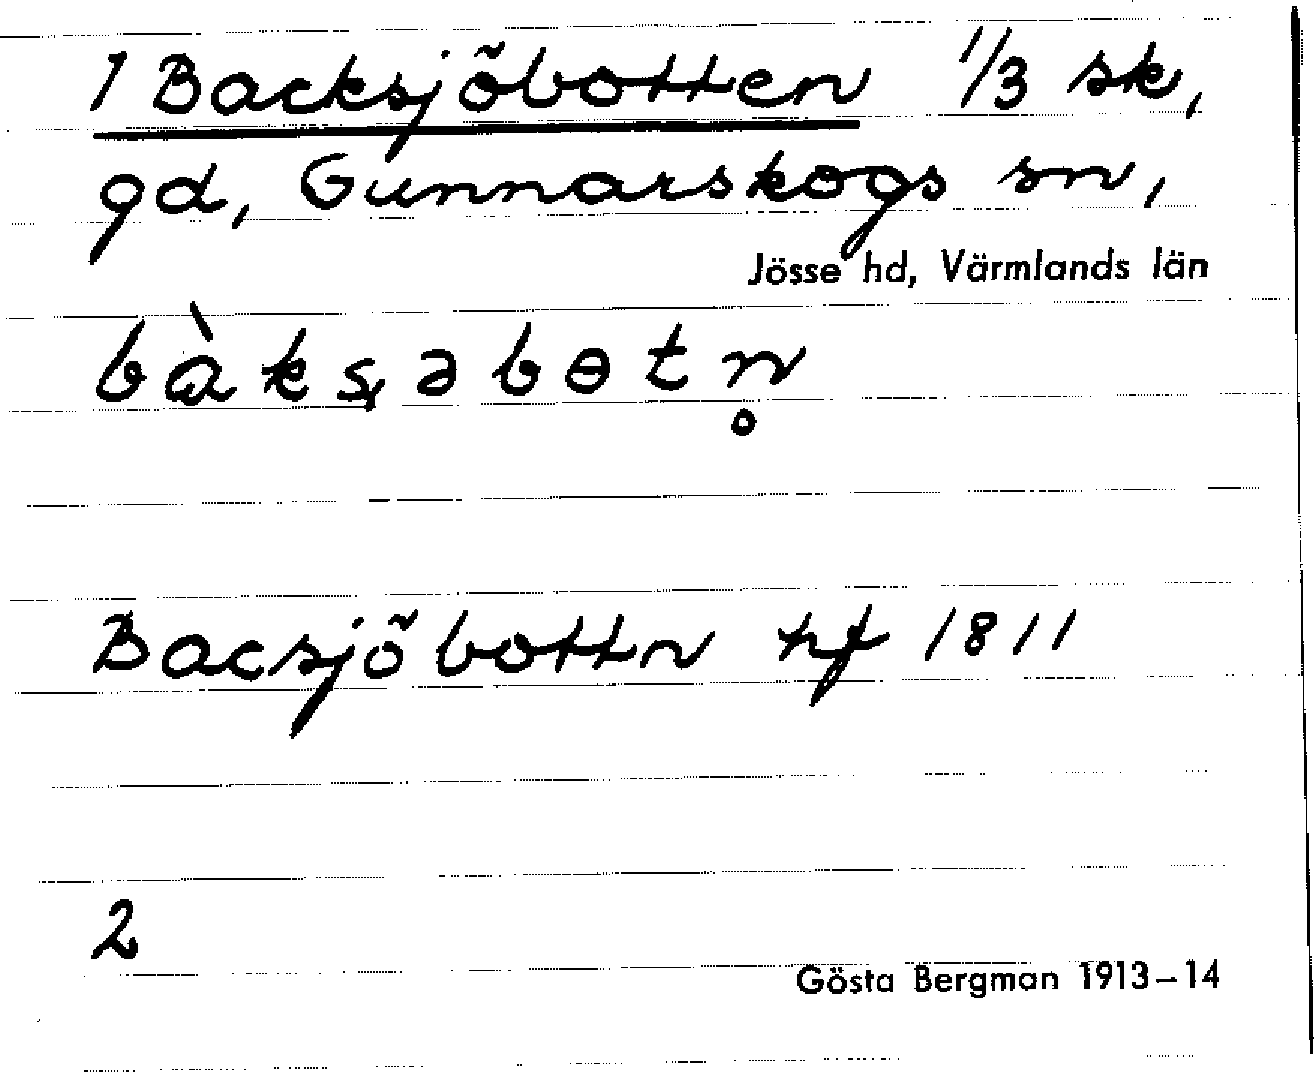 1 Backsjöbotten 1/3 sk,
gd, Gunnarskogs sn,
Jösse hd, Värmlands län
bàkʂəbɵtn̥
Bacsjöbottn hf 1811
2
Gösta Bergman 1913–14